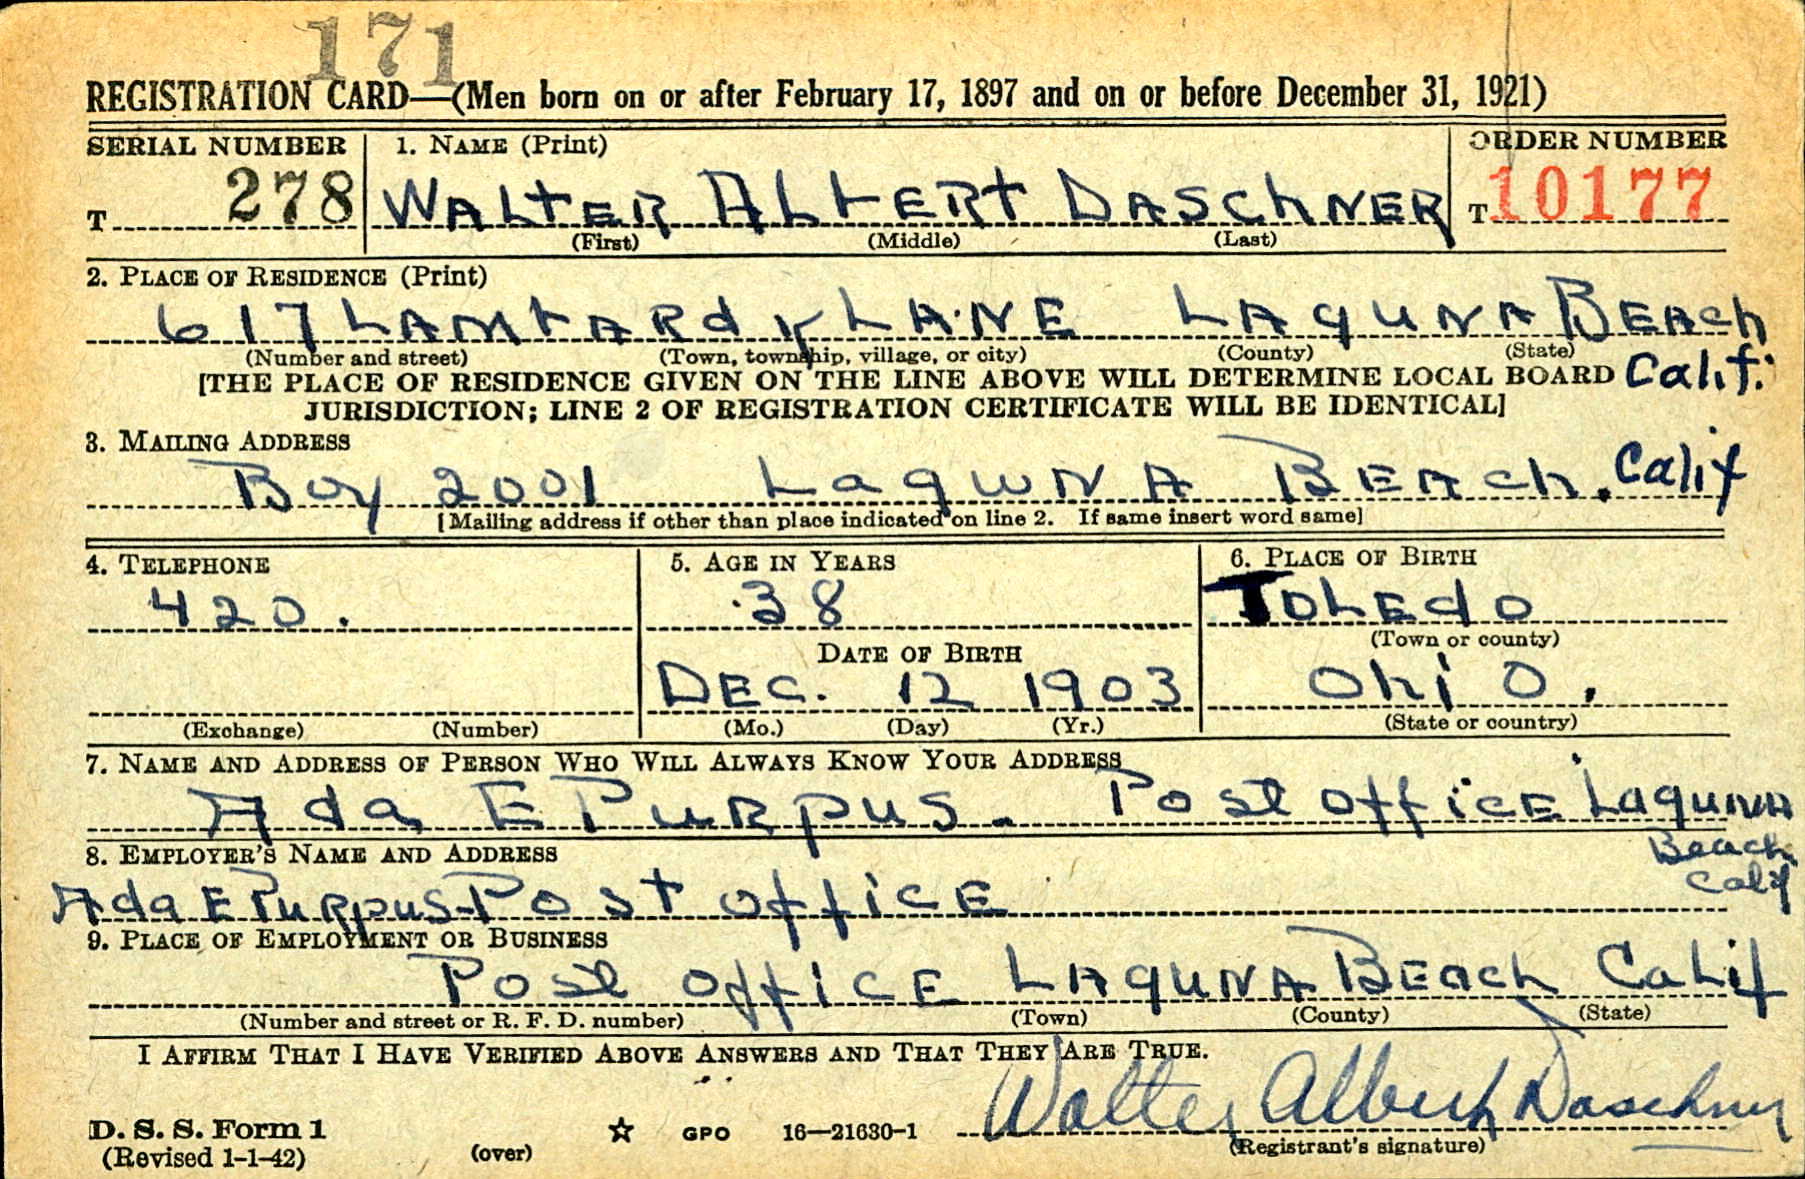 171
REGISTRATION CARD—(Men born on or after February 17, 1897 and on or before December 31, 1921)
SERIAL NUMBER 1. NAME (Print) ORDER NUMBER
T 278 WALTER ALBERT DASCHNER T 10177
(First) (Middle) (Last)
2. PLACE OF RESIDENCE (Print)
617 LAMBARDY LANE LAGUNA BEACH
(Number and street) (Town, township, village, or city) (County) (State)
[THE PLACE OF RESIDENCE GIVEN ON THE LINE ABOVE WILL DETERMINE LOCAL BOARD Calif.
JURISDICTION; LINE 2 OF REGISTRATION CERTIFICATE WILL BE IDENTICAL]
3. MAILING ADDRESS
Box 2001 LAGUNA BEACH. Calif
[Mailing address if other than place indicated on line 2. If same insert word same]
4. TELEPHONE 5. AGE IN YEARS 6. PLACE OF BIRTH
420. 38 TOLEdO
(Town or county)
DATE OF BIRTH
DEC. 12 1903 OhiO.
(Exchange) (Number) (Mo.) (Day) (Yr.) (State or country)
7. NAME AND ADDRESS OF PERSON WHO WILL ALWAYS KNOW YOUR ADDRESS
Ada E PURPUS. Post OfficE Laguna
Beach
Calif
8. EMPLOYER'S NAME AND ADDRESS
Ada E PURPUS-Post OfficE
9. PLACE OF EMPLOYMENT OR BUSINESS
Post OfficE LAGUNA BEach CaLif
(Number and street or R. F. D. number) (Town) (County) (State)
I AFFIRM THAT I HAVE VERIFIED ABOVE ANSWERS AND THAT THEY ARE TRUE.
Walter Albert Daschner
D. S. S. Form 1 (over) GPO 16—21630-1 (Registrant's signature)
(Revised 1-1-42)